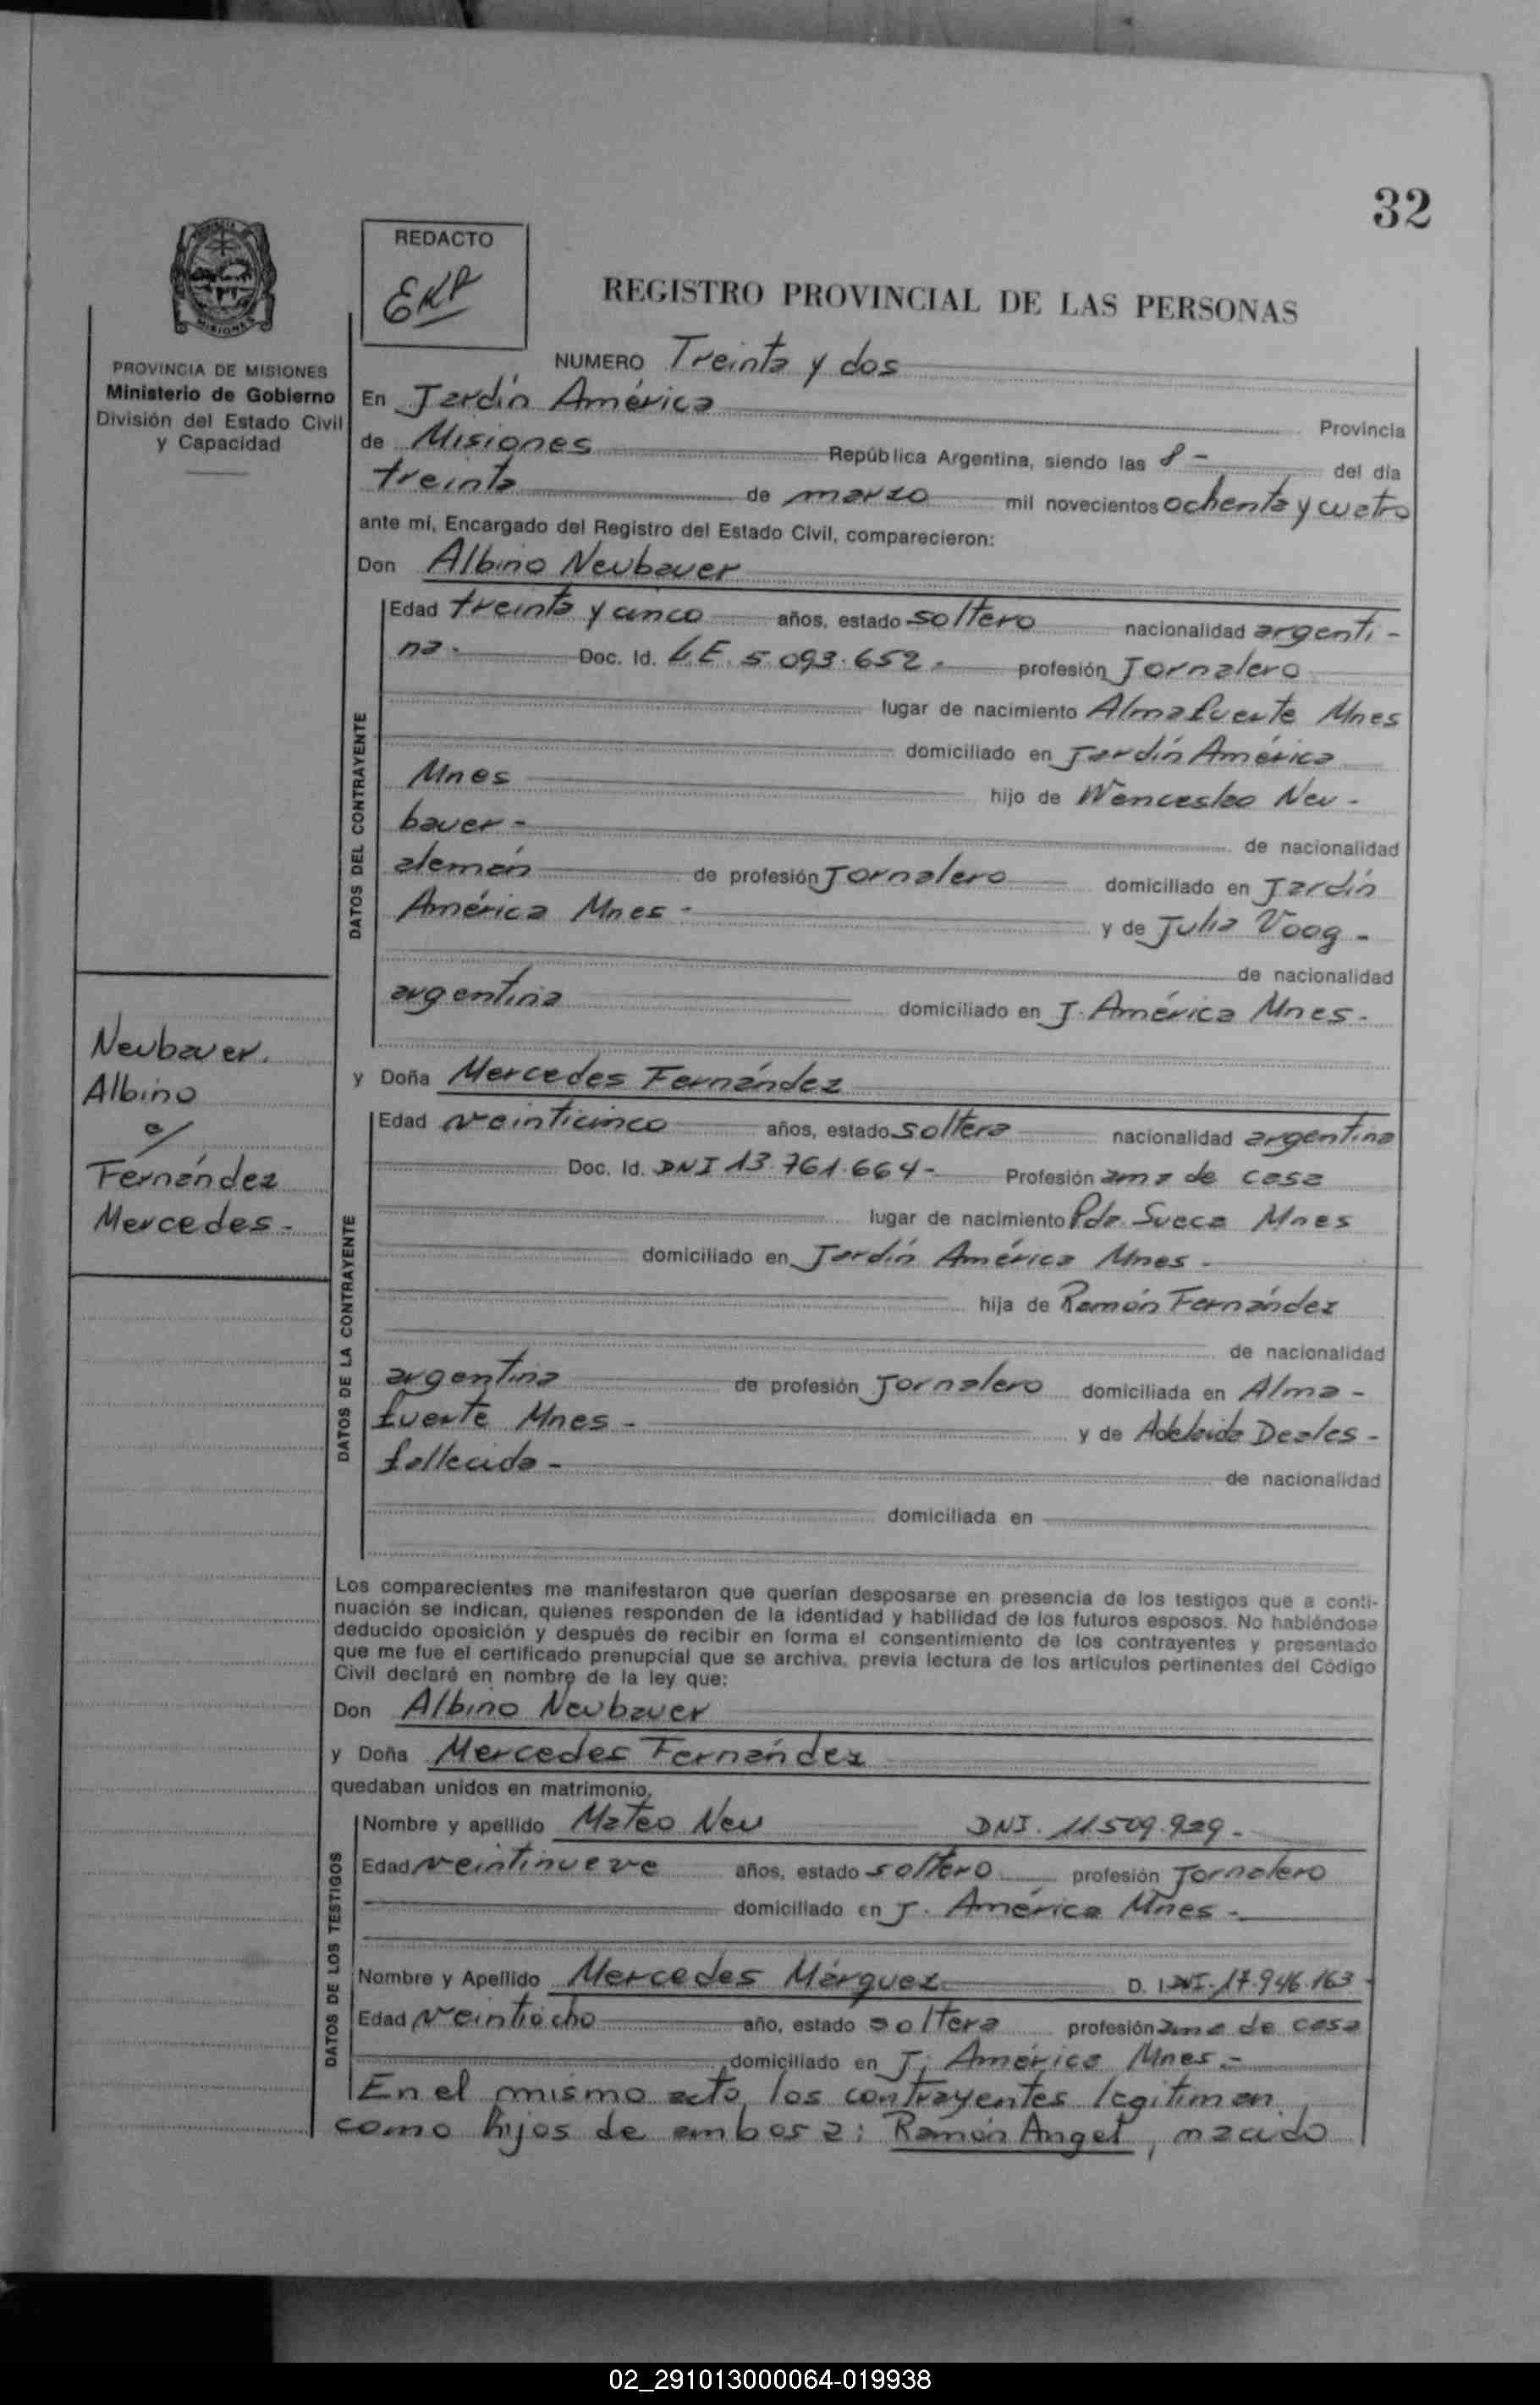 32
REDACTO
REGISTRO PROVINCIAL DE LAS PERSONAS
MISIONES
PROVINCIA DE MISIONES
Ministerio de Gobierno
División del Estado Civil
y Capacidad
NUMERO Treinta y dos
En Jardín América Provincia
de Misiones República Argentina, siendo las 8 - del día
treinta de marzo mil novecientos ochenta y cuatro
ante mí, Encargado del Registro del Estado Civil, comparecieron:
Don Albino Neubauer
DATOS DEL CONTRAYENTE
Edad treinta y cinco años, estado soltero nacionalidad argenti-
na- Doc. Id. L.E. 5.093.652- profesión Jornalero
lugar de nacimiento Almafuerte Mnes
domiciliado en Jardín América
Mnes hijo de Wenceslao Neu-
bauer- de nacionalidad
alemán de profesión Jornalero domiciliado en Jardín
América Mnes- y de Julia Voog-
de nacionalidad
argentina domiciliado en J. América Mnes-
Neubauer.
Albino
c/
Fernández
Mercedes-
y Doña Mercedes Fernández
DATOS DE LA CONTRAYENTE
Edad veinticinco años, estado soltera nacionalidad argentina
Doc. Id. DNI 13.761.664- Profesión ama de casa
lugar de nacimiento Pda. Sueca Mnes
domiciliado en Jardín América Mnes-
hija de Ramón Fernández
de nacionalidad
argentina de profesión Jornalero domiciliada en Alma-
fuerte Mnes- y de Adelaida Deales-
fallecida- de nacionalidad
domiciliada en
Los comparecientes me manifestaron que querían desposarse en presencia de los testigos que a conti-
nuación se indican, quienes responden de la identidad y habilidad de los futuros esposos. No habiéndose
deducido oposición y después de recibir en forma el consentimiento de los contrayentes y presentado
que me fue el certificado prenupcial que se archiva, previa lectura de los artículos pertinentes del Código
Civil declaré en nombre de la ley que:
Don Albino Neubauer
y Doña Mercedes Fernández
quedaban unidos en matrimonio.
DATOS DE LOS TESTIGOS
Nombre y apellido Mateo Neu DNI. 11.509.929-
Edad veintinueve años, estado soltero profesión Jornalero
domiciliado en J. América Mnes-
Nombre y Apellido Mercedes Márquez D. I. DNI. 17.946.163-
Edad veintiocho año, estado soltera profesión ama de casa
domiciliado en J. América Mnes.-
En el mismo acto, los contrayentes legitiman
como hijos de ambos a: Ramón Angel, nacido
02_291013000064-019938